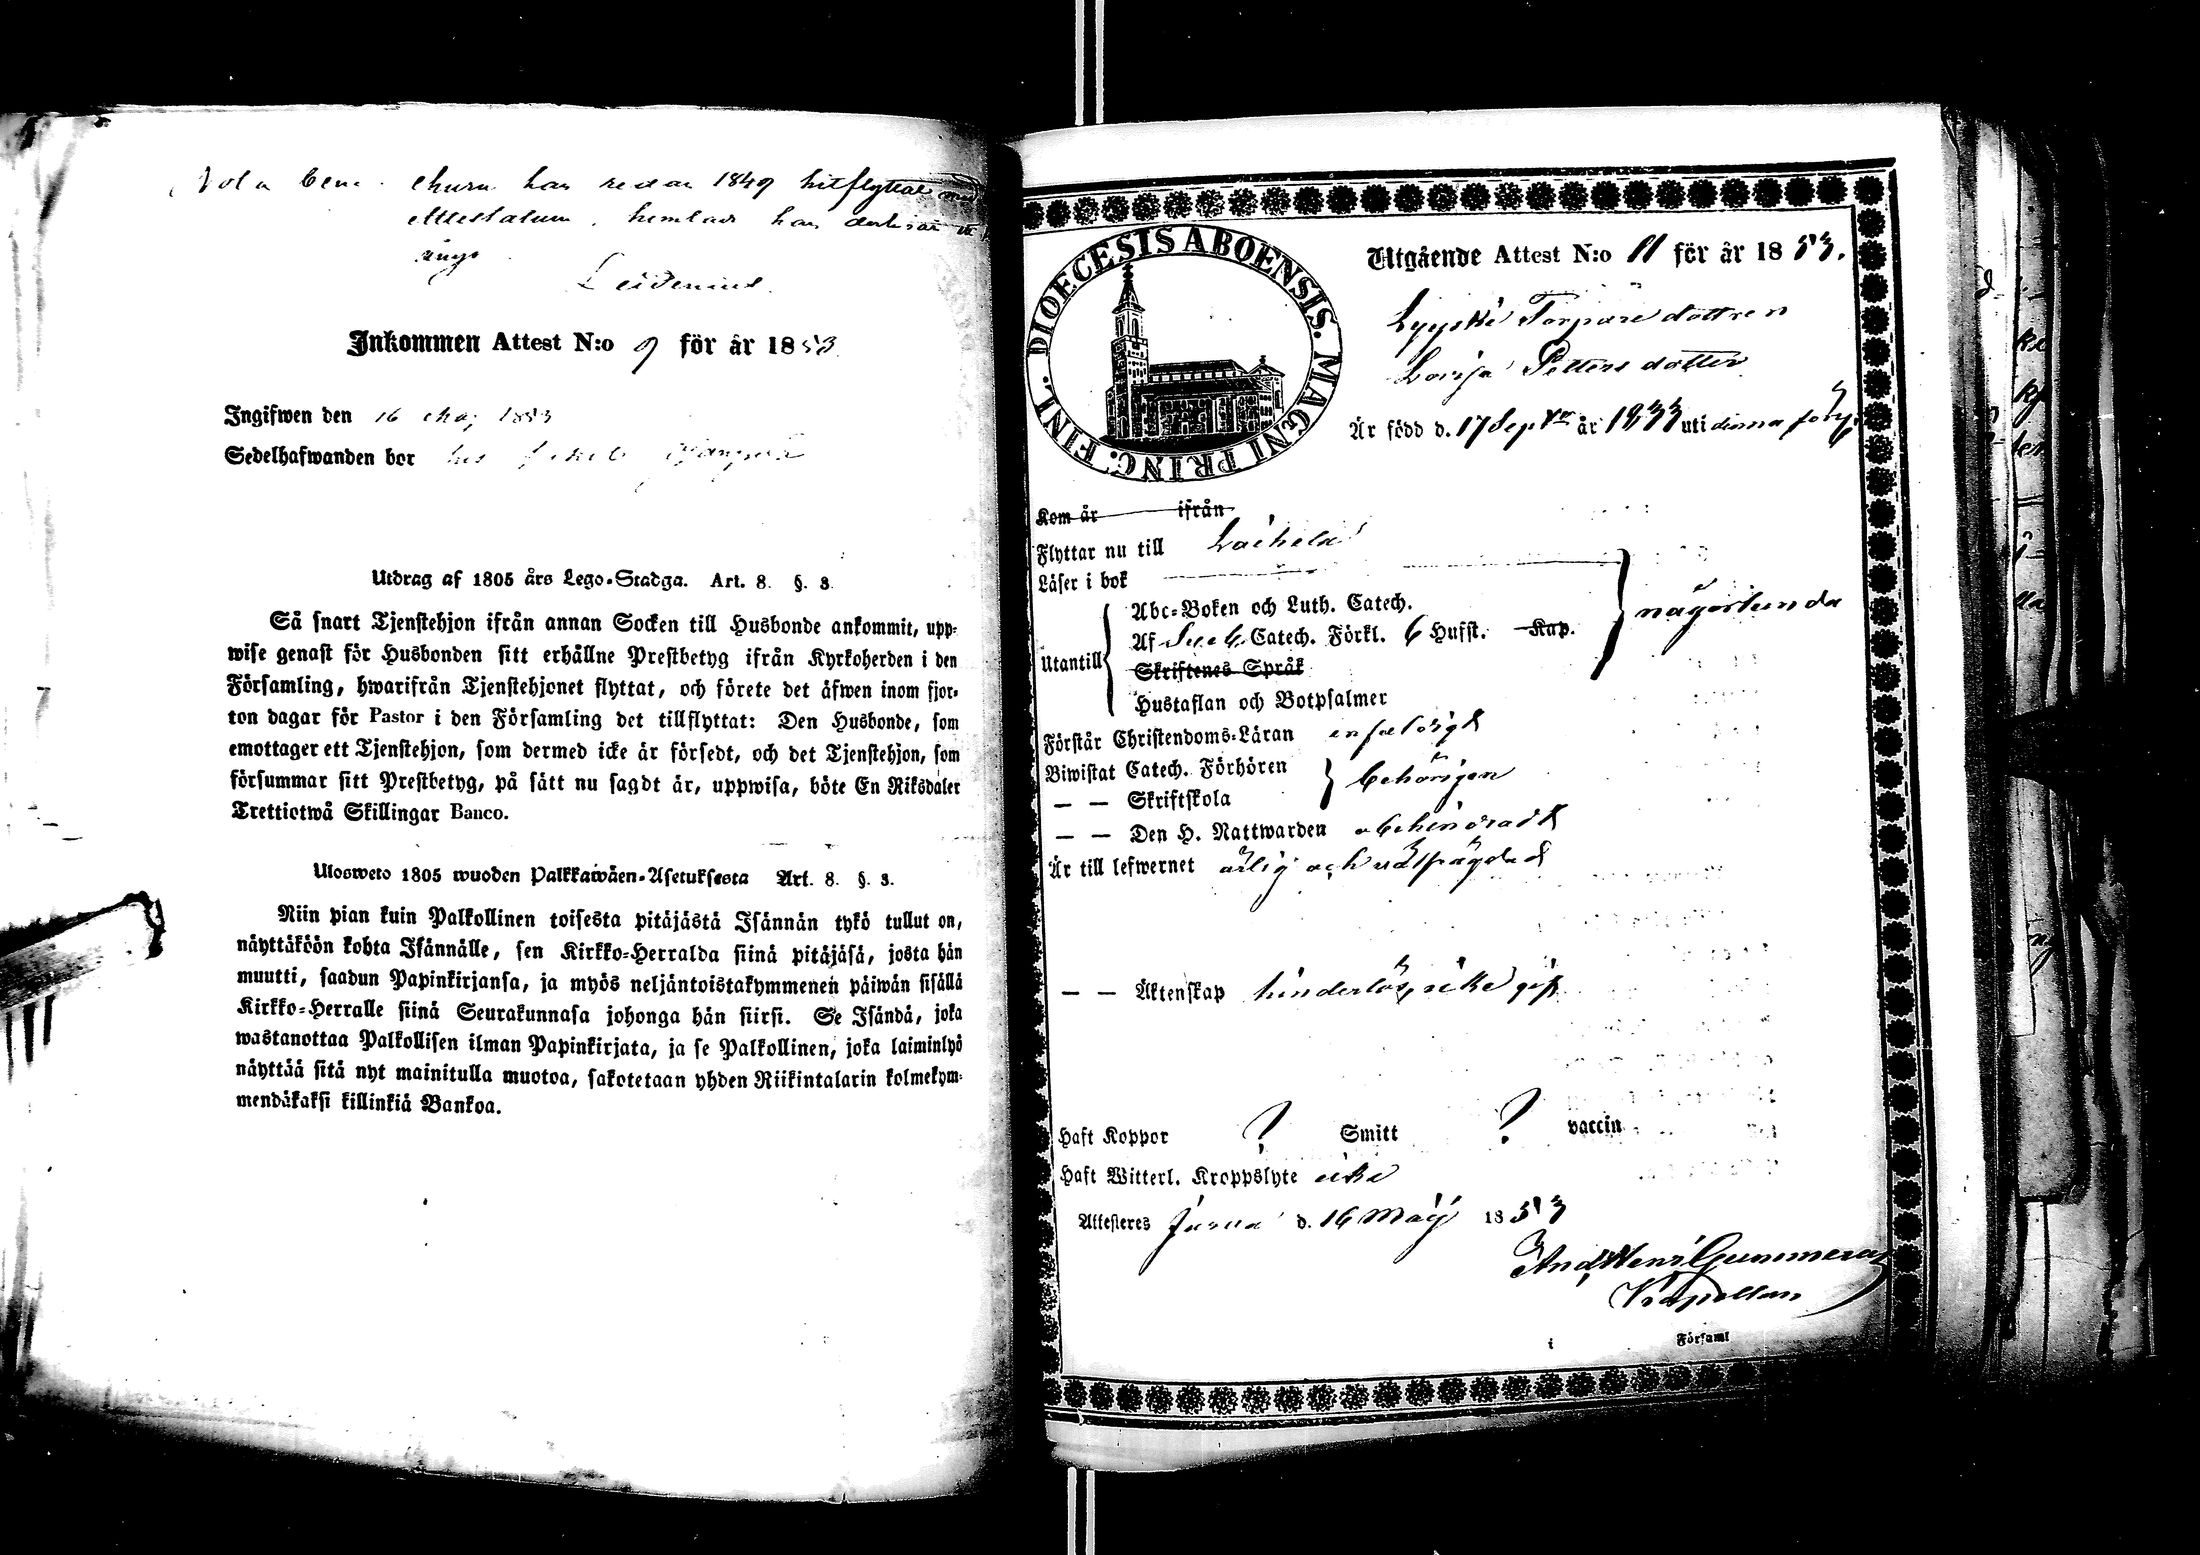 Nota bene.
redan 1849 hitflyttat
Attestatum
Leidenius.
Inkommen Attest N:o 9 för år 1853.
Ingifwen den 16 Maj 1853
Sedelhafwanden bor hos
Utdrag af 1805 års Lego-Stadga. Art. 8. §. 3.
Så snart Tjenstehjon ifrån annan Socken till Husbonde ankommit, upp-
wise genast för Husbonden sitt erhållne Prestbetyg ifrån Kyrkoherden i den
Församling, hwarifrån Tjenstehjonet flyttat, och förete det äfwen inom fjor-
ton dagar för Pastor i den Församling det tillflyttat: Den Husbonde, som
emottager ett Tjenstehjon, som dermed icke är försedt, och det Tjenstehjon, som
försummar sitt Prestbetyg, på sätt nu sagdt är, uppwisa, böte En Riksdaler
Trettiotwå Skillingar Banco.
Ulosweto 1805 wuoden Palkkawäen-Asetuksesta Art. 8. §. 3.
Niin pian kuin Palkollinen toisesta pitäjästä Isännän tykö tullut on,
näyttäköön kohta Isännälle, sen Kirkko-Herralda siinä pitäjäsä, josta hän
muutti, saadun Papinkirjansa, ja myös neljäntoistakymmenen päiwän sisällä
Kirkko-Herralle siinä Seurakunnasa johonga hän siirsi. Se Isändä, joka
wastanottaa Palkollisen ilman Papinkirjata, ja se Palkollinen, joka laiminlyö
näyttää sitä nyt mainitulla muotoa, sakotetaan yhden Riikintalarin kolmekym-
mendäkaksi killinkiä Bankoa.
FINL. DIOECESIS ABOENSIS. MAGNI PRINC.
Utgående Attest N:o 11 för år 1853.
Torpare dottren
Lovisa Petters dotter
Är född d. 17 Sept:br år 1833 uti denna förs.
Kom år ifrån
Flyttar nu till Laihela
Läser i bok
Abc-Boken och Luth. Catech.
Af Sveb. Catech. Förkl. 6 Hufst. Kap. någorlunda
Utantill
Skriftenes Språk
Hustaflan och Botpsalmer
Förstår Christendoms-Läran enfaldigt
Biwistat Catech. Förhören
behörigen
— — Skriftskola
— — Den H. Nattwarden obehindradt
Är till lefwernet ärlig och välfrägdad
— — Äktenskap hinderlös, icke gift
Haft Koppor ? Smitt ? vaccin
Haft Witterl. Kroppslyte icke
Attesteres Jurva d. 16 Maij 1853
And. Henr. Gummerus
Kapellan
i Församl